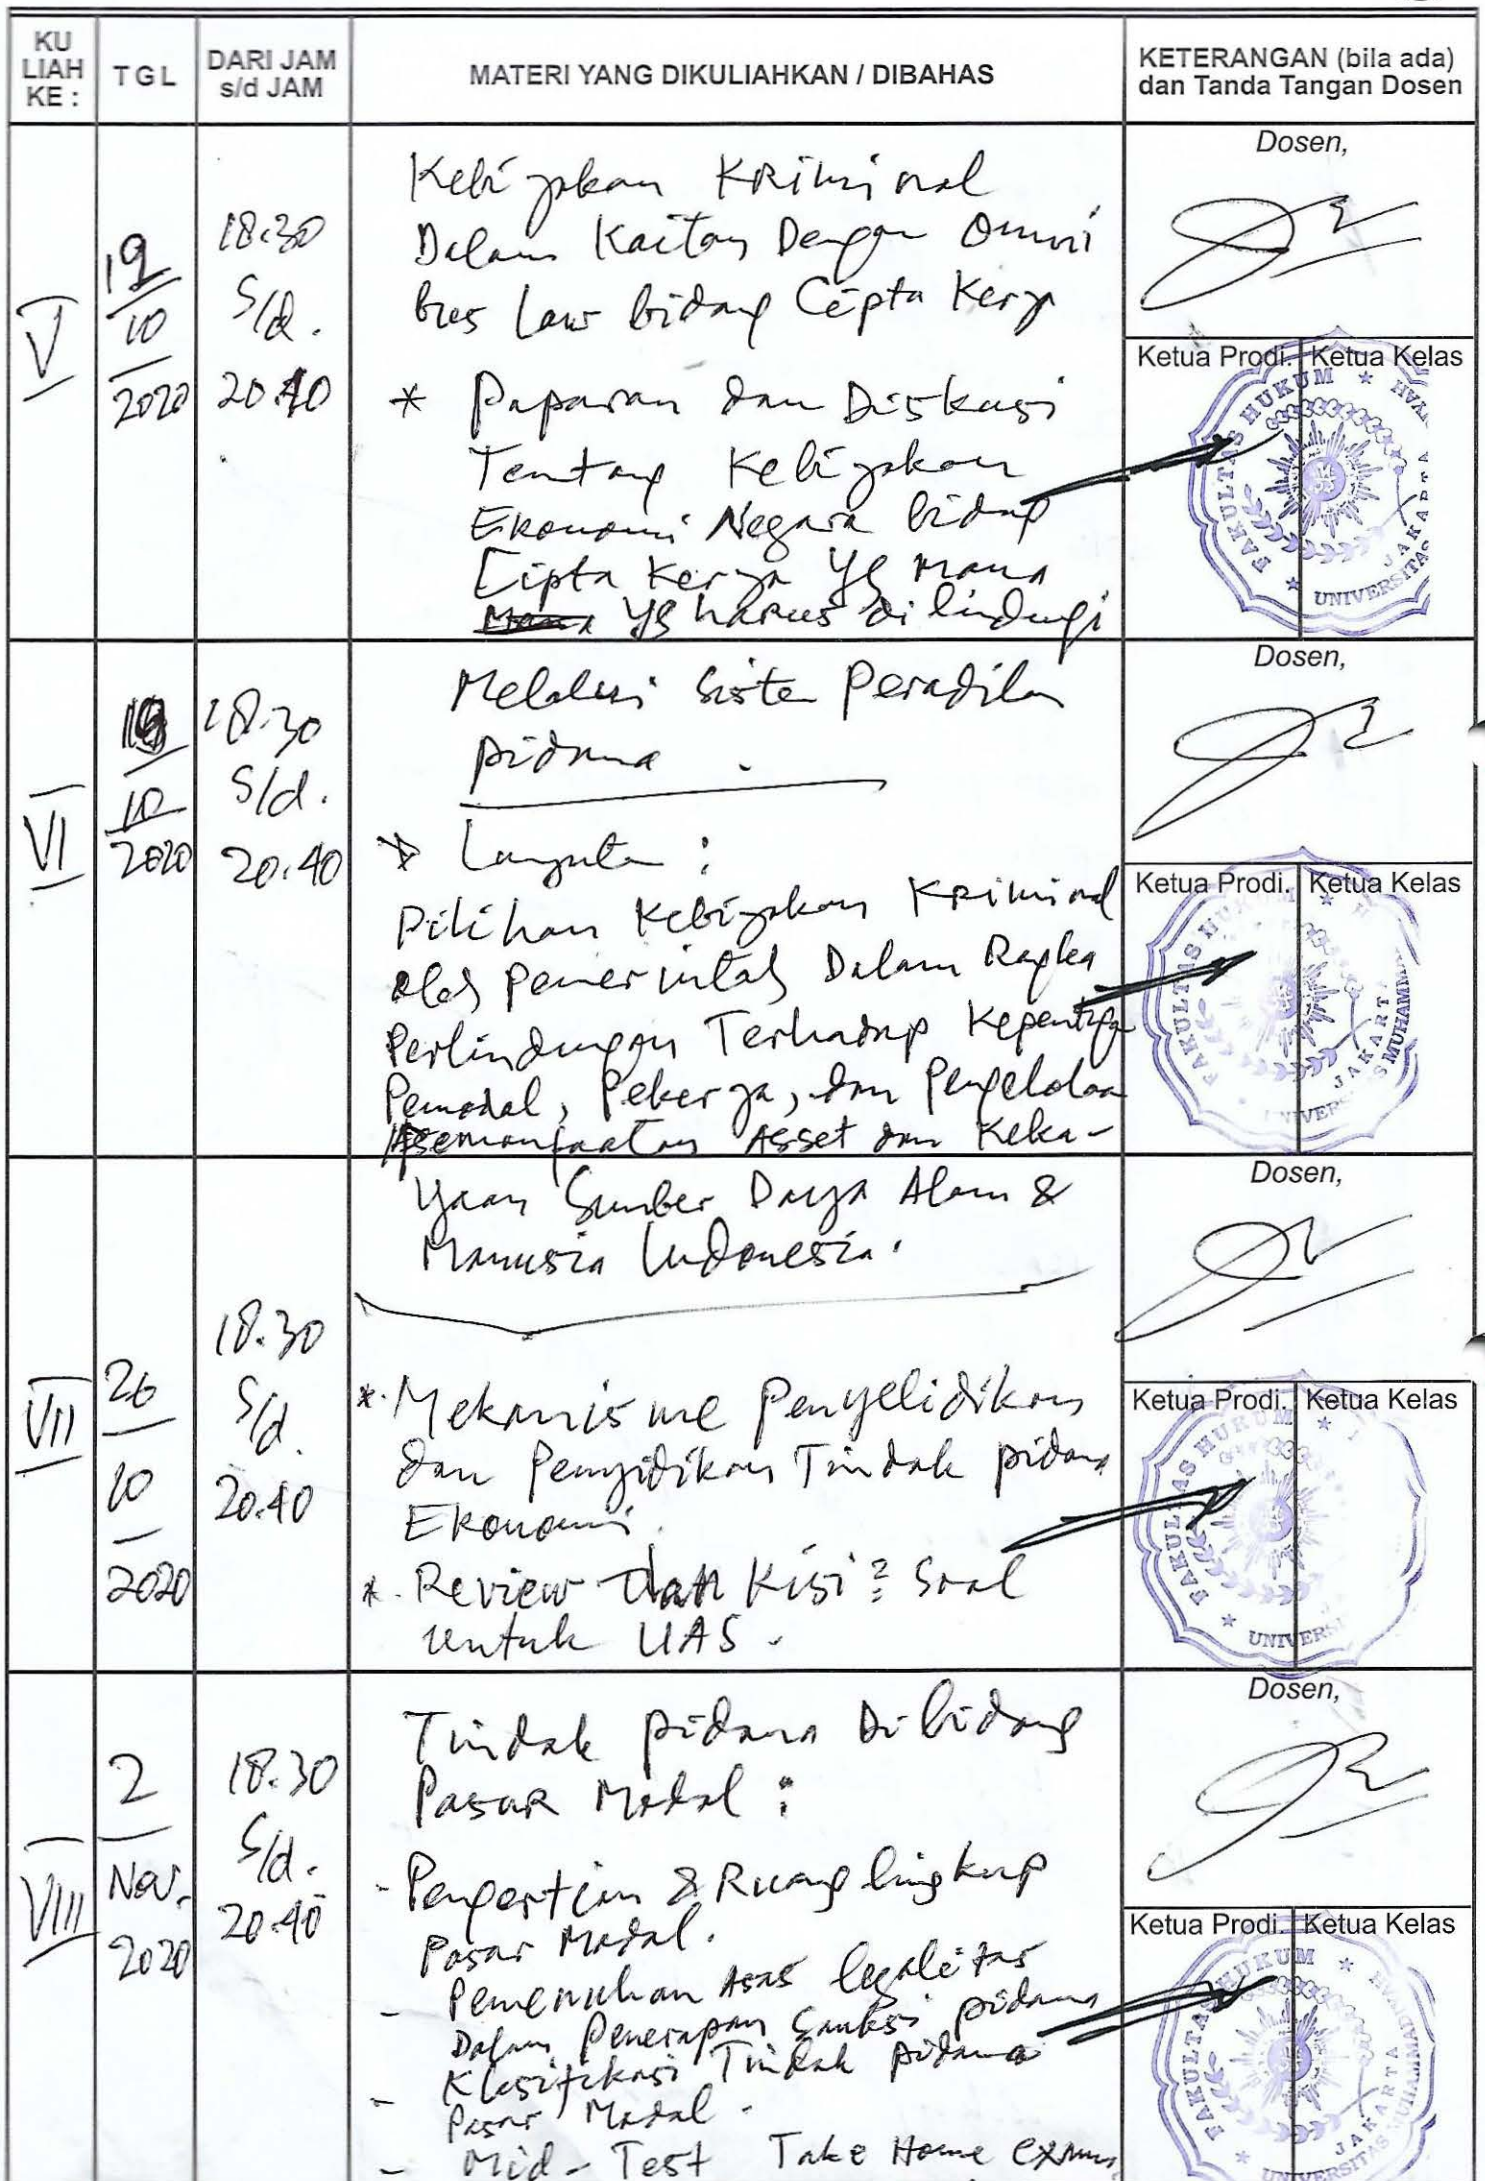 KU LIAH KE :
TGL
DARI JAM s/d JAM
MATERI YANG DIKULIAHKAN / DIBAHAS
KETERANGAN (bila ada) dan Tanda Tangan Dosen
V
10
2020
18.30
s/d.
20.40
Kebijakan Kriminal
Dalam Kaitan Dengan Omni
bus Law bidang Cipta Kerja
* Paparan dan Diskusi
Tentang Kebijakan
Ekonomi Negara bidang
Cipta Kerja Yg mana
yg harus di lindungi
Dosen,
Ketua Prodi.
Ketua Kelas
FAKULTAS HUKUM
UNIVERSITAS
JAKARTA
VI
10
2020
18.30
s/d.
20.40
Melalui Siste Peradilan
pidana .
* Lanjutan :
Pilihan Kebijakan Kriminal
oleh pemerintah Dalam Rangka
Perlindungan Terhadap Kepentingan
Pemodal, Pekerja, dan Pengelolaan
Pemanfaatan Asset dan Keka-
Dosen,
Ketua Prodi.
Ketua Kelas
FAKULTAS HUKUM
JAKARTA
VII
26
10
2020
18.30
s/d.
20.40
yaan Sumber Daya Alam &
Manusia Indonesia.
*. Mekanisme Penyelidikan
dan Penyidikan Tindak pidana
Ekonomi.
*. Review dan Kisi2 Soal
untuk UAS.
Dosen,
Ketua Prodi.
Ketua Kelas
FAKULTAS HUKUM
VIII
2
Nov.
2020
18.30
s/d.
20.40
Tindak pidana Dibidang
Pasar Modal :
- Pengertian & Ruang lingkup
Pasar Modal.
- Pemenuhan Asas legalitas
Dalam Penerapan Sanksi pidana
- Klasifikasi Tindak pidana
Pasar Modal.
- Mid - Test Take Home exam
Dosen,
Ketua Prodi.
Ketua Kelas
FAKULTAS HUKUM
UNIVERSITAS MUHAMMADIYAH
JAKARTA